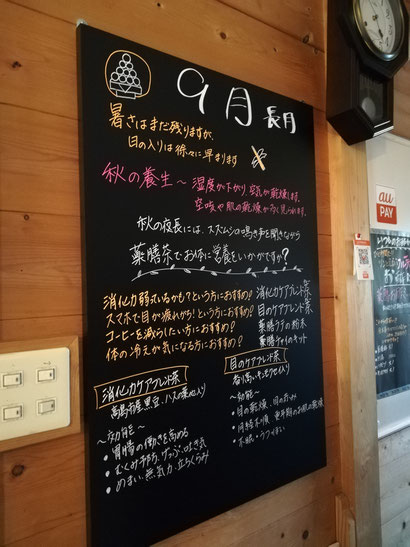 9月 長月
暑さはまだ残りますが、
日の入りは徐々に早まります
秋の養生～ 湿度が下がり、空気が乾燥します。
空咳や肌の乾燥が多く見られます。
秋の夜長には、スズムシの鳴き声を聞きながら
薬膳茶でお体に営養をいかがですか?
消化力弱ているかも?という方におすすめ! 消化力ケアブレンド茶
スマホで目が疲れがち!という方におすすめ! 目のケアブレンド茶
コーヒーを減らしたい方におすすめ! 薬膳ラテの粉末
体の冷えが気になる方におすすめ! 薬膳チャイのキット
消化力ケアブレンド茶
黒豆、ハスの葉他入り
～効能～
・胃腸の働きを高める
・むくみ予防、げっぷ、吐き気
・めまい、無気力、立ちくらみ
目のケアブレンド茶
香り高いキンモクセイ入り
～効能～
・目の乾燥、目のかすみ
・不眠・うつうつ
au
PAY